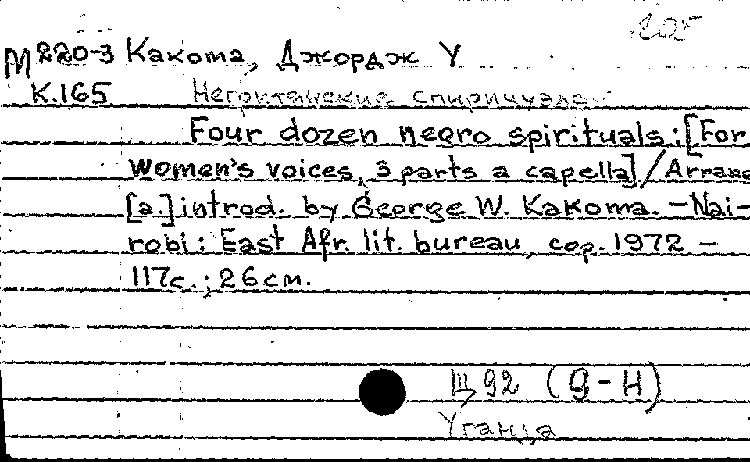 М 220-3 Какома, Джордж У
К.165 Негритянские спиричуэлз.
Four dozen negro spirituals: [For
women's voices, 3 parts a capella] / Arrang
[a.] introd. by George W. Kakoma. — Nai-
robi: East Afr. lit. bureau, cop. 1972 —
117с.; 26см.
Щ92 (9-Н)
Уганда